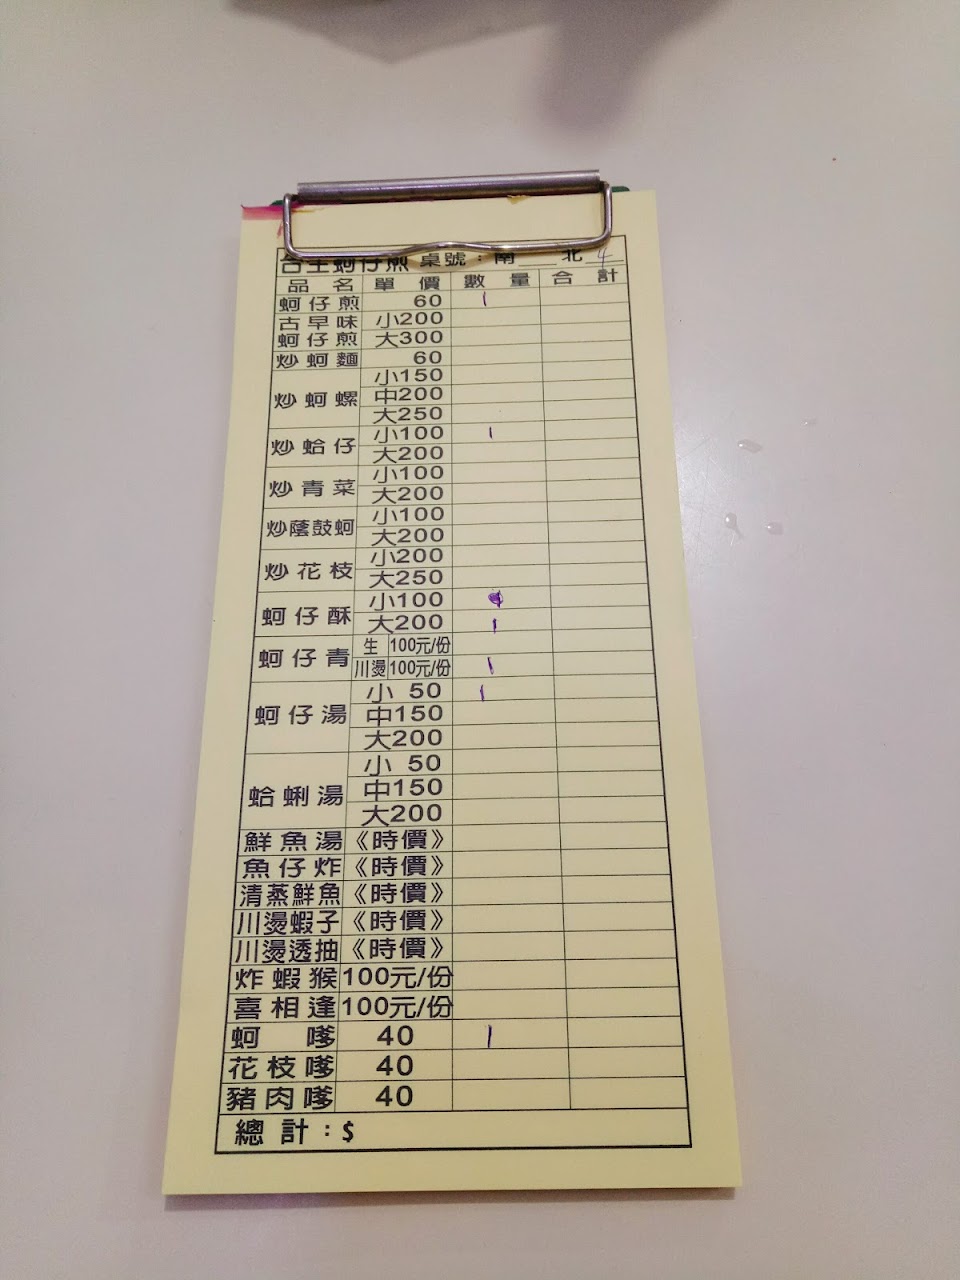 合生蚵仔煎 桌號：南 北 4
品名 單價 數量 合計
蚵仔煎 60 1
古早味 小200
蚵仔煎 大300
炒蚵麵 60
炒蚵螺 小150
中200
大250
炒蛤仔 小100 1
大200
炒青菜 小100
大200
炒蔭鼓蚵 小100
大200
炒花枝 小200
大250
蚵仔酥 小100
大200 1
蚵仔青 生 100元/份
川燙 100元/份 1
蚵仔湯 小 50 1
中150
大200
蛤蜊湯 小 50
中150
大200
鮮魚湯《時價》
魚仔炸《時價》
清蒸鮮魚《時價》
川燙蝦子《時價》
川燙透抽《時價》
炸蝦猴 100元/份
喜相逢 100元/份
蚵嗲 40 1
花枝嗲 40
豬肉嗲 40
總計：$